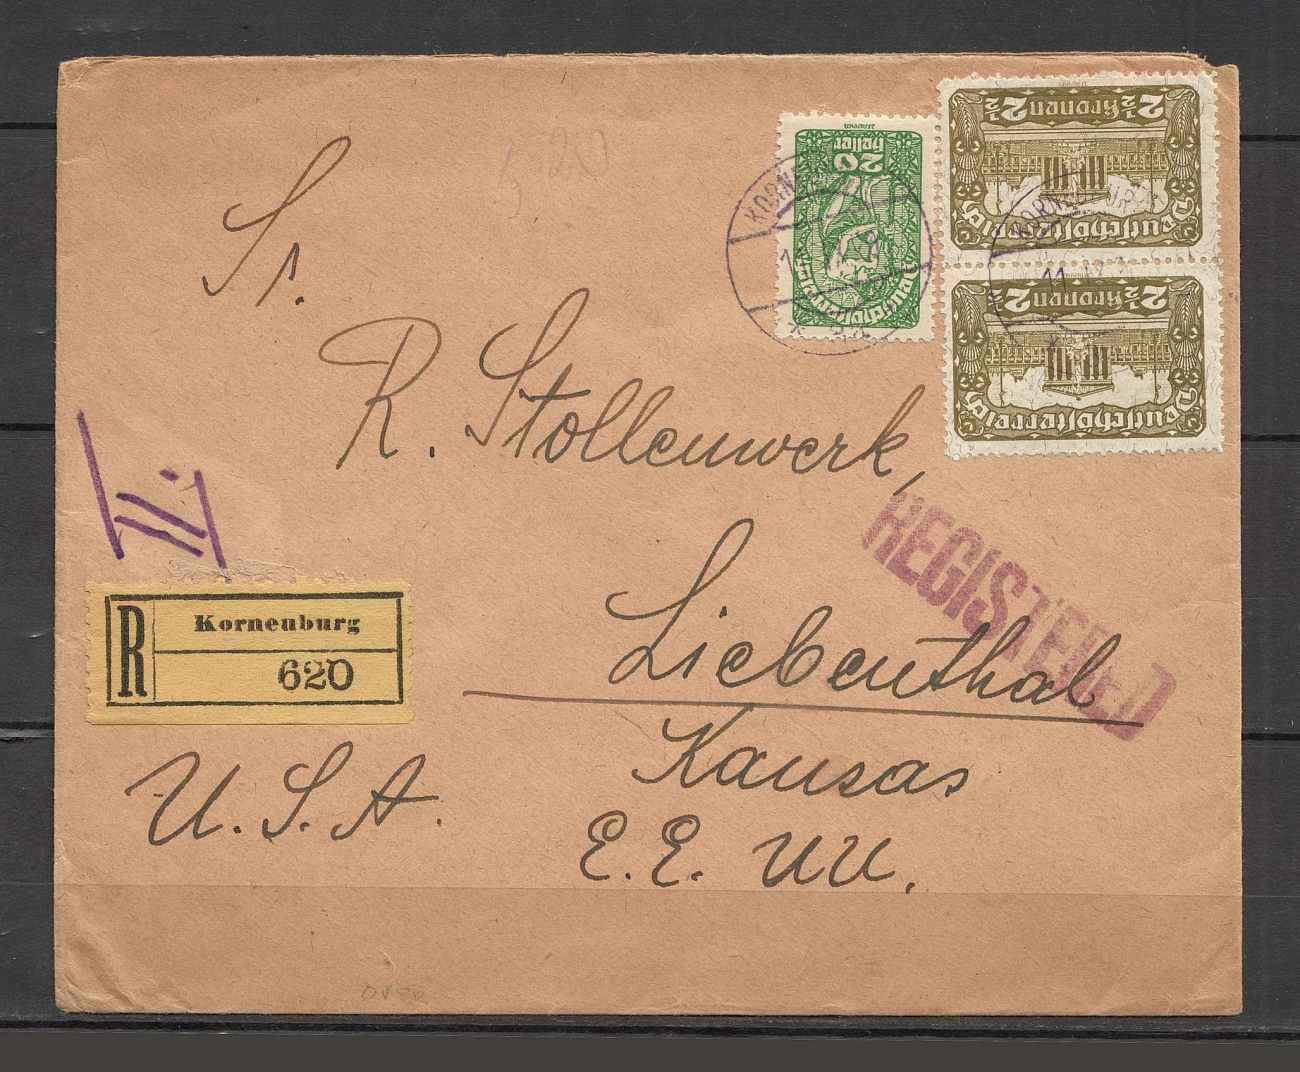 5 20
2½ Kronen 2½
Deutschösterreich
20
Heller
Deutschösterreich
2½ Kronen 2½
Deutschösterreich
Sr.
R. Stollenwerk,
REGISTERED
Liebenthal
Kansas
E.E. UU.
R
Korneuburg
620
U.S.A.
OVER